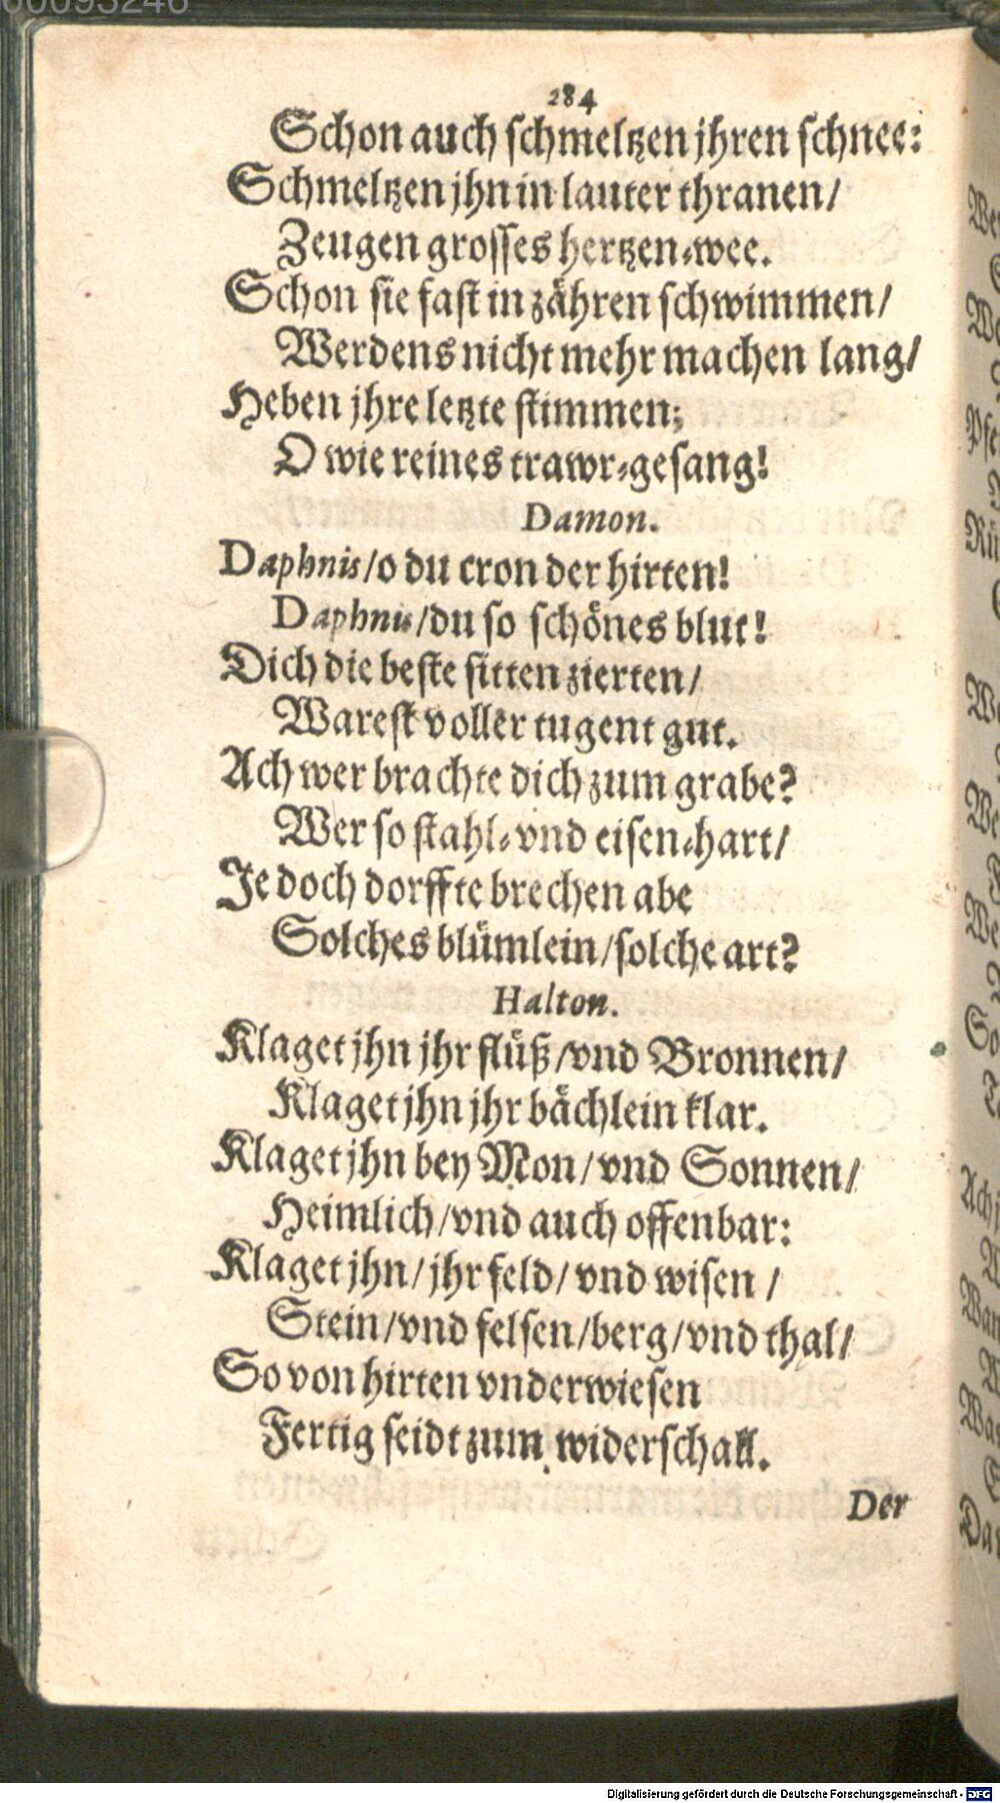 60095246
284
Schon auch schmeltzen jhren schnee:
Schmeltzen jhn in lauter thranen/
Zeugen grosses hertzen-wee.
Schon sie fast in zähren schwimmen/
Werdens nicht mehr machen lang/
Heben jhre letzte stimmen;
O wie reines trawr-gesang!
Damon.
Daphnis/o du cron der hirten!
Daphnis/du so schönes blut!
Dich die beste sitten zierten/
Warest voller tugent gut.
Ach wer brachte dich zum grabe?
Wer so stahl-vnd eisen-hart/
Je doch dorffte brechen abe
Solches blümlein/solche art?
Halton.
Klaget jhn jhr flüß/vnd Bronnen/
Klaget jhn jhr bächlein klar.
Klaget jhn bey Mon/vnd Sonnen/
Heimlich/vnd auch offenbar:
Klaget jhn/jhr feld/vnd wisen/
Stein/vnd felsen/berg/vnd thal/
So von hirten vnderwiesen
Fertig seidt zum widerschall.
Der
Digitalisierung gefördert durch die Deutsche Forschungsgemeinschaft - DFG